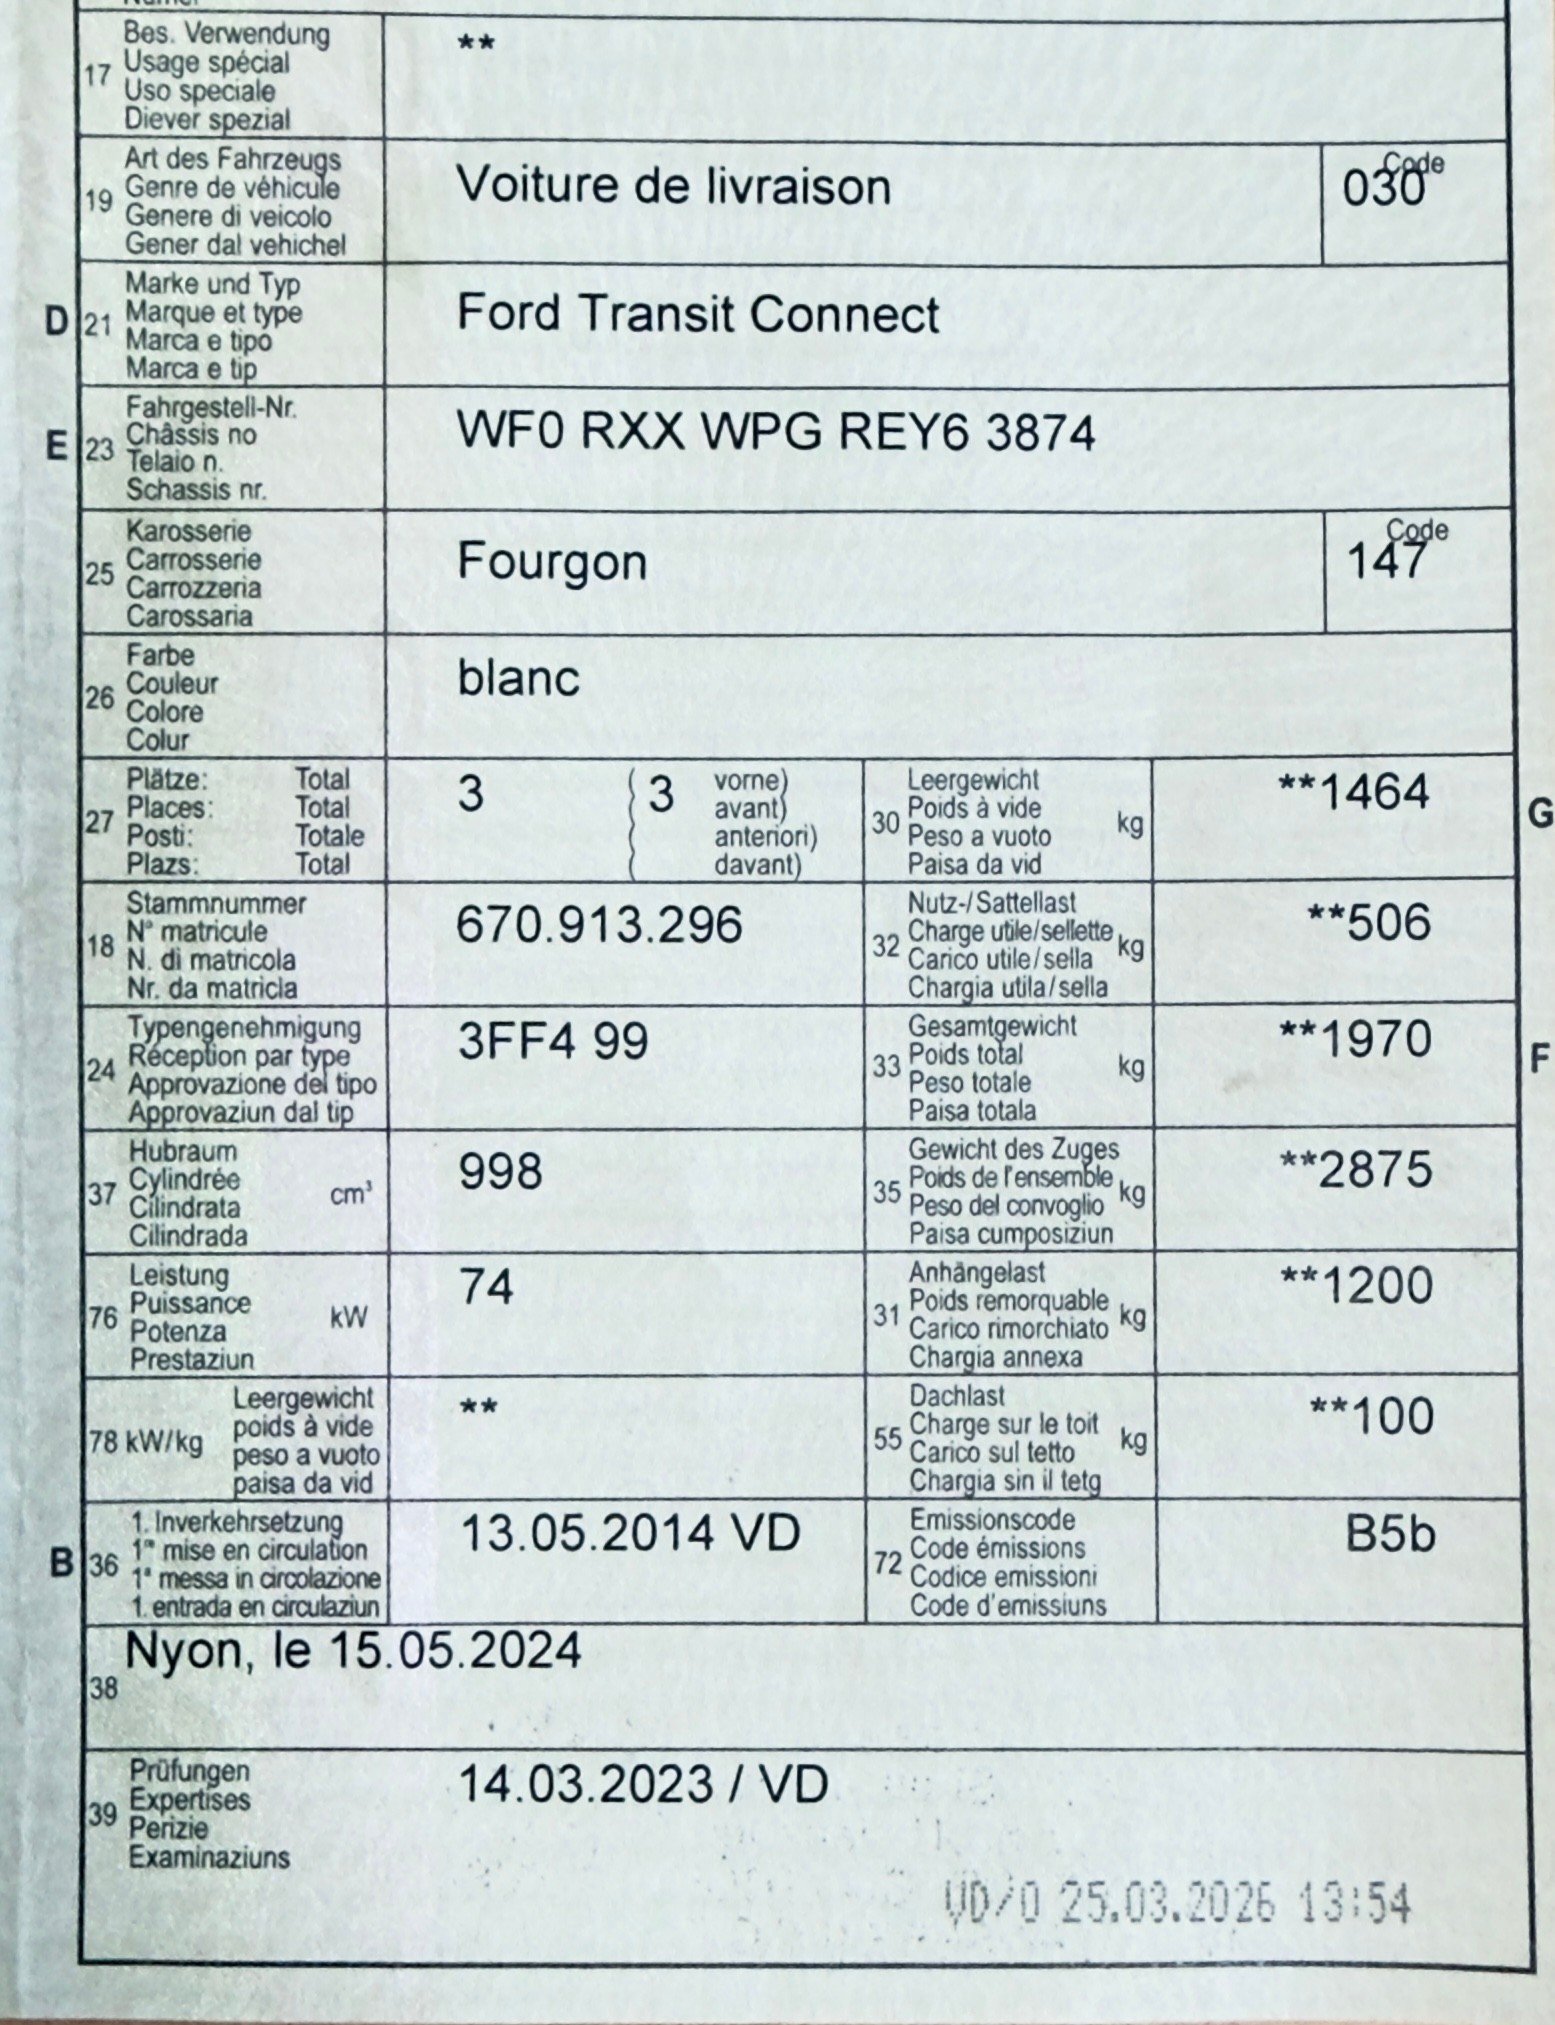 Bes. Verwendung
17 Usage spécial
Uso speciale
Diever spezial
**
Art des Fahrzeugs
19 Genre de véhicule
Genere di veicolo
Gener dal vehichel
Voiture de livraison
Code
030
D 21 Marke und Typ
Marque et type
Marca e tipo
Marca e tip
Ford Transit Connect
E 23 Fahrgestell-Nr.
Châssis no
Telaio n.
Schassis nr.
WF0 RXX WPG REY6 3874
Karosserie
25 Carrosserie
Carrozzeria
Carossaria
Fourgon
Code
147
Farbe
26 Couleur
Colore
Colur
blanc
Plätze: Total
27 Places: Total
Posti: Totale
Plazs: Total
3 ( 3 vorne)
avant)
anteriori)
davant)
Leergewicht
30 Poids à vide kg
Peso a vuoto
Paisa da vid
**1464 G
Stammnummer
18 N° matricule
N. di matricola
Nr. da matricla
670.913.296
Nutz-/Sattellast
32 Charge utile/sellette kg
Carico utile/sella
Chargia utila/sella
**506
Typengenehmigung
24 Réception par type
Approvazione del tipo
Approvaziun dal tip
3FF4 99
Gesamtgewicht
33 Poids total kg
Peso totale
Paisa totala
**1970 F
Hubraum
37 Cylindrée cm³
Cilindrata
Cilindrada
998
Gewicht des Zuges
35 Poids de l'ensemble kg
Peso del convoglio
Paisa cumposiziun
**2875
Leistung
76 Puissance kW
Potenza
Prestaziun
74
Anhängelast
31 Poids remorquable kg
Carico rimorchiato
Chargia annexa
**1200
78 kW/kg Leergewicht
poids à vide
peso a vuoto
paisa da vid
**
Dachlast
55 Charge sur le toit kg
Carico sul tetto
Chargia sin il tetg
**100
B 36 1. Inverkehrsetzung
1re mise en circulation
1a messa in circolazione
1. entrada en circulaziun
13.05.2014 VD
Emissionscode
72 Code émissions
Codice emissioni
Code d'emissiuns
B5b
Nyon, le 15.05.2024
38
Prüfungen
39 Expertises
Perizie
Examinaziuns
14.03.2023 / VD
VD/0 25.03.2026 13:54